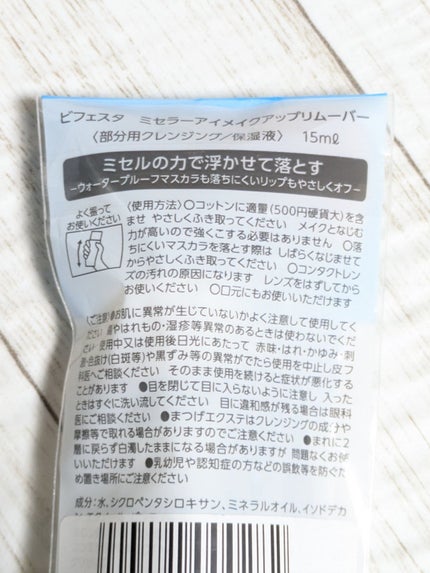 ビフェスタ　ミセラーアイメイクアップリムーバー
〈部分用クレンジング/保湿液〉　15mℓ
ミセルの力で浮かせて落とす
−ウォータープルーフマスカラも落ちにくいリップもやさしくオフ−
よく振って
お使いください
〈使用方法〉○コットンに適量(500円硬貨大)を含
ませ やさしくふき取ってください　メイクとなじむ
力が高いので強くこする必要はありません　○落
ちにくいマスカラを落とす際は しばらくなじませて
からやさしくふき取ってください　○コンタクトレン
ズの汚れの原因になります　レンズをはずしてから
お使いください　○口元にもお使いいただけます
〈ご注意〉●お肌に異常が生じていないかよく注意して使用してく
ださい 傷やはれもの・湿疹等異常のあるときは使わないでくだ
さい 使用中又は使用後日光にあたって 赤味・はれ・かゆみ・刺
激・色抜け(白斑等)や黒ずみ等の異常がでたら使用を中止し皮フ
科医へご相談ください　そのまま使用を続けると症状が悪化する
ことがあります　●目を閉じて目に入らないように注意し 入った
ときはすぐに洗い流してください　目に違和感が残る場合は眼科
医にご相談ください　●まつげエクステはクレンジングの成分や
摩擦等で取れる場合がありますのでご注意ください　●まれに2
層に戻らず白濁したままになる場合がありますが 問題なくお使
いいただけます　●乳幼児や認知症の方などの誤飲等を防ぐた
め置き場所にご注意ください
成分：水、シクロペンタシロキサン、ミネラルオイル、イソドデカ